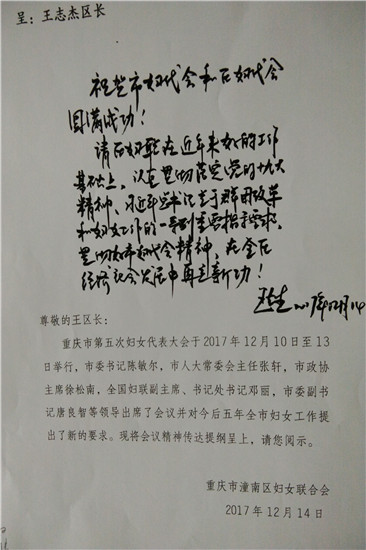 呈：王志杰区长
祝贺市妇代会和区妇代会
圆满成功！
请区妇联在近年来好的工作
基础上，认真贯彻落实党的十九大
精神、习近平总书记关于群团改革
和妇女工作的一系列重要指示要求，
贯彻好市妇代会精神，在全区
经济社会发展中再立新功！
尊敬的王区长：
重庆市第五次妇女代表大会于 2017 年 12 月 10 日至 13
日举行，市委书记陈敏尔，市人大常委会主任张轩，市政协
主席徐松南，全国妇联副主席、书记处书记邓丽，市委副书
记唐良智等领导出席了会议并对今后五年全市妇女工作提
出了新的要求。现将会议精神传达提纲呈上，请您阅示。
重庆市潼南区妇女联合会
2017 年 12 月 14 日